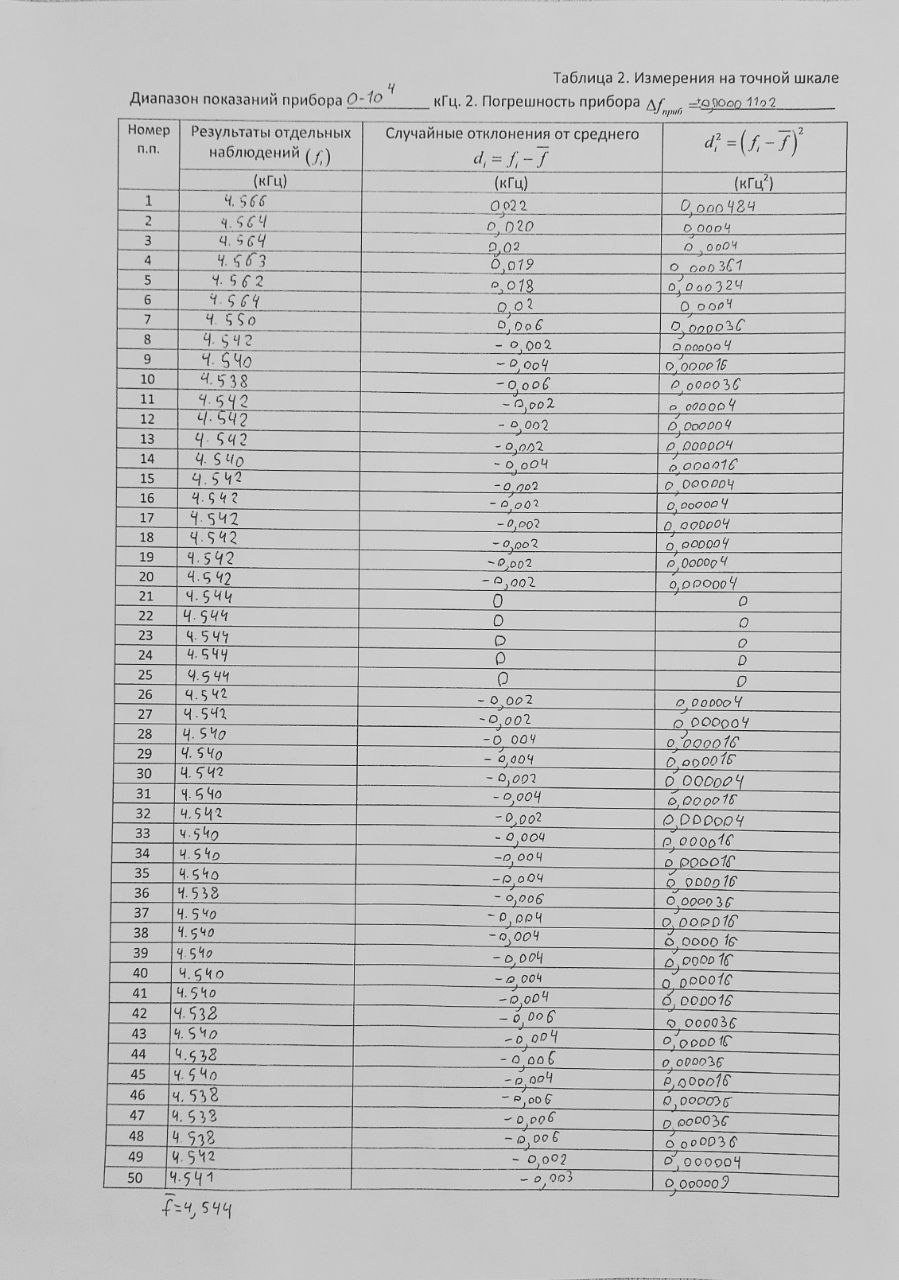 Таблица 2. Измерения на точной шкале
Диапазон показаний прибора 0-10⁴ кГц. 2. Погрешность прибора Δf приб =
Номер п.п. Результаты отдельных наблюдений (fᵢ) Случайные отклонения от среднего dᵢ = fᵢ − f̅ dᵢ² = (fᵢ − f̅)²
(кГц) (кГц) (кГц²)
1 4.566 0,022 0,000484
2 4.564 0,020 0,0004
3 4.564 0,02 0,0004
4 4.563 0,019 0,000361
5 4.562 0,018 0,000324
6 4.564 0,02 0,0004
7 4.550 0,006 0,000036
8 4.542 -0,002 0,000004
9 4.540 -0,004 0,000016
10 4.538 -0,006 0,000036
11 4.542 -0,002 0,000004
12 4.542 -0,002 0,000004
13 4.542 -0,002 0,000004
14 4.540 -0,004 0,000016
15 4.542 -0,002 0,000004
16 4.542 -0,002 0,000004
17 4.542 -0,002 0,000004
18 4.542 -0,002 0,000004
19 4.542 -0,002 0,000004
20 4.542 -0,002 0,000004
21 4.544 0 0
22 4.544 0 0
23 4.544 0 0
24 4.544 0 0
25 4.544 0 0
26 4.542 -0,002 0,000004
27 4.542 -0,002 0,000004
28 4.540 -0,004 0,000016
29 4.540 -0,004 0,000016
30 4.542 -0,002 0,000004
31 4.540 -0,004 0,000016
32 4.542 -0,002 0,000004
33 4.540 -0,004 0,000016
34 4.540 -0,004 0,000016
35 4.540 -0,004 0,000016
36 4.538 -0,006 0,000036
37 4.540 -0,004 0,000016
38 4.540 -0,004 0,000016
39 4.540 -0,004 0,000016
40 4.540 -0,004 0,000016
41 4.540 -0,004 0,000016
42 4.538 -0,006 0,000036
43 4.540 -0,004 0,000016
44 4.538 -0,006 0,000036
45 4.540 -0,004 0,000016
46 4.538 -0,006 0,000036
47 4.538 -0,006 0,000036
48 4.538 -0,006 0,000036
49 4.542 -0,002 0,000004
50 4.541 -0,003 0,000009
f̅=4,544